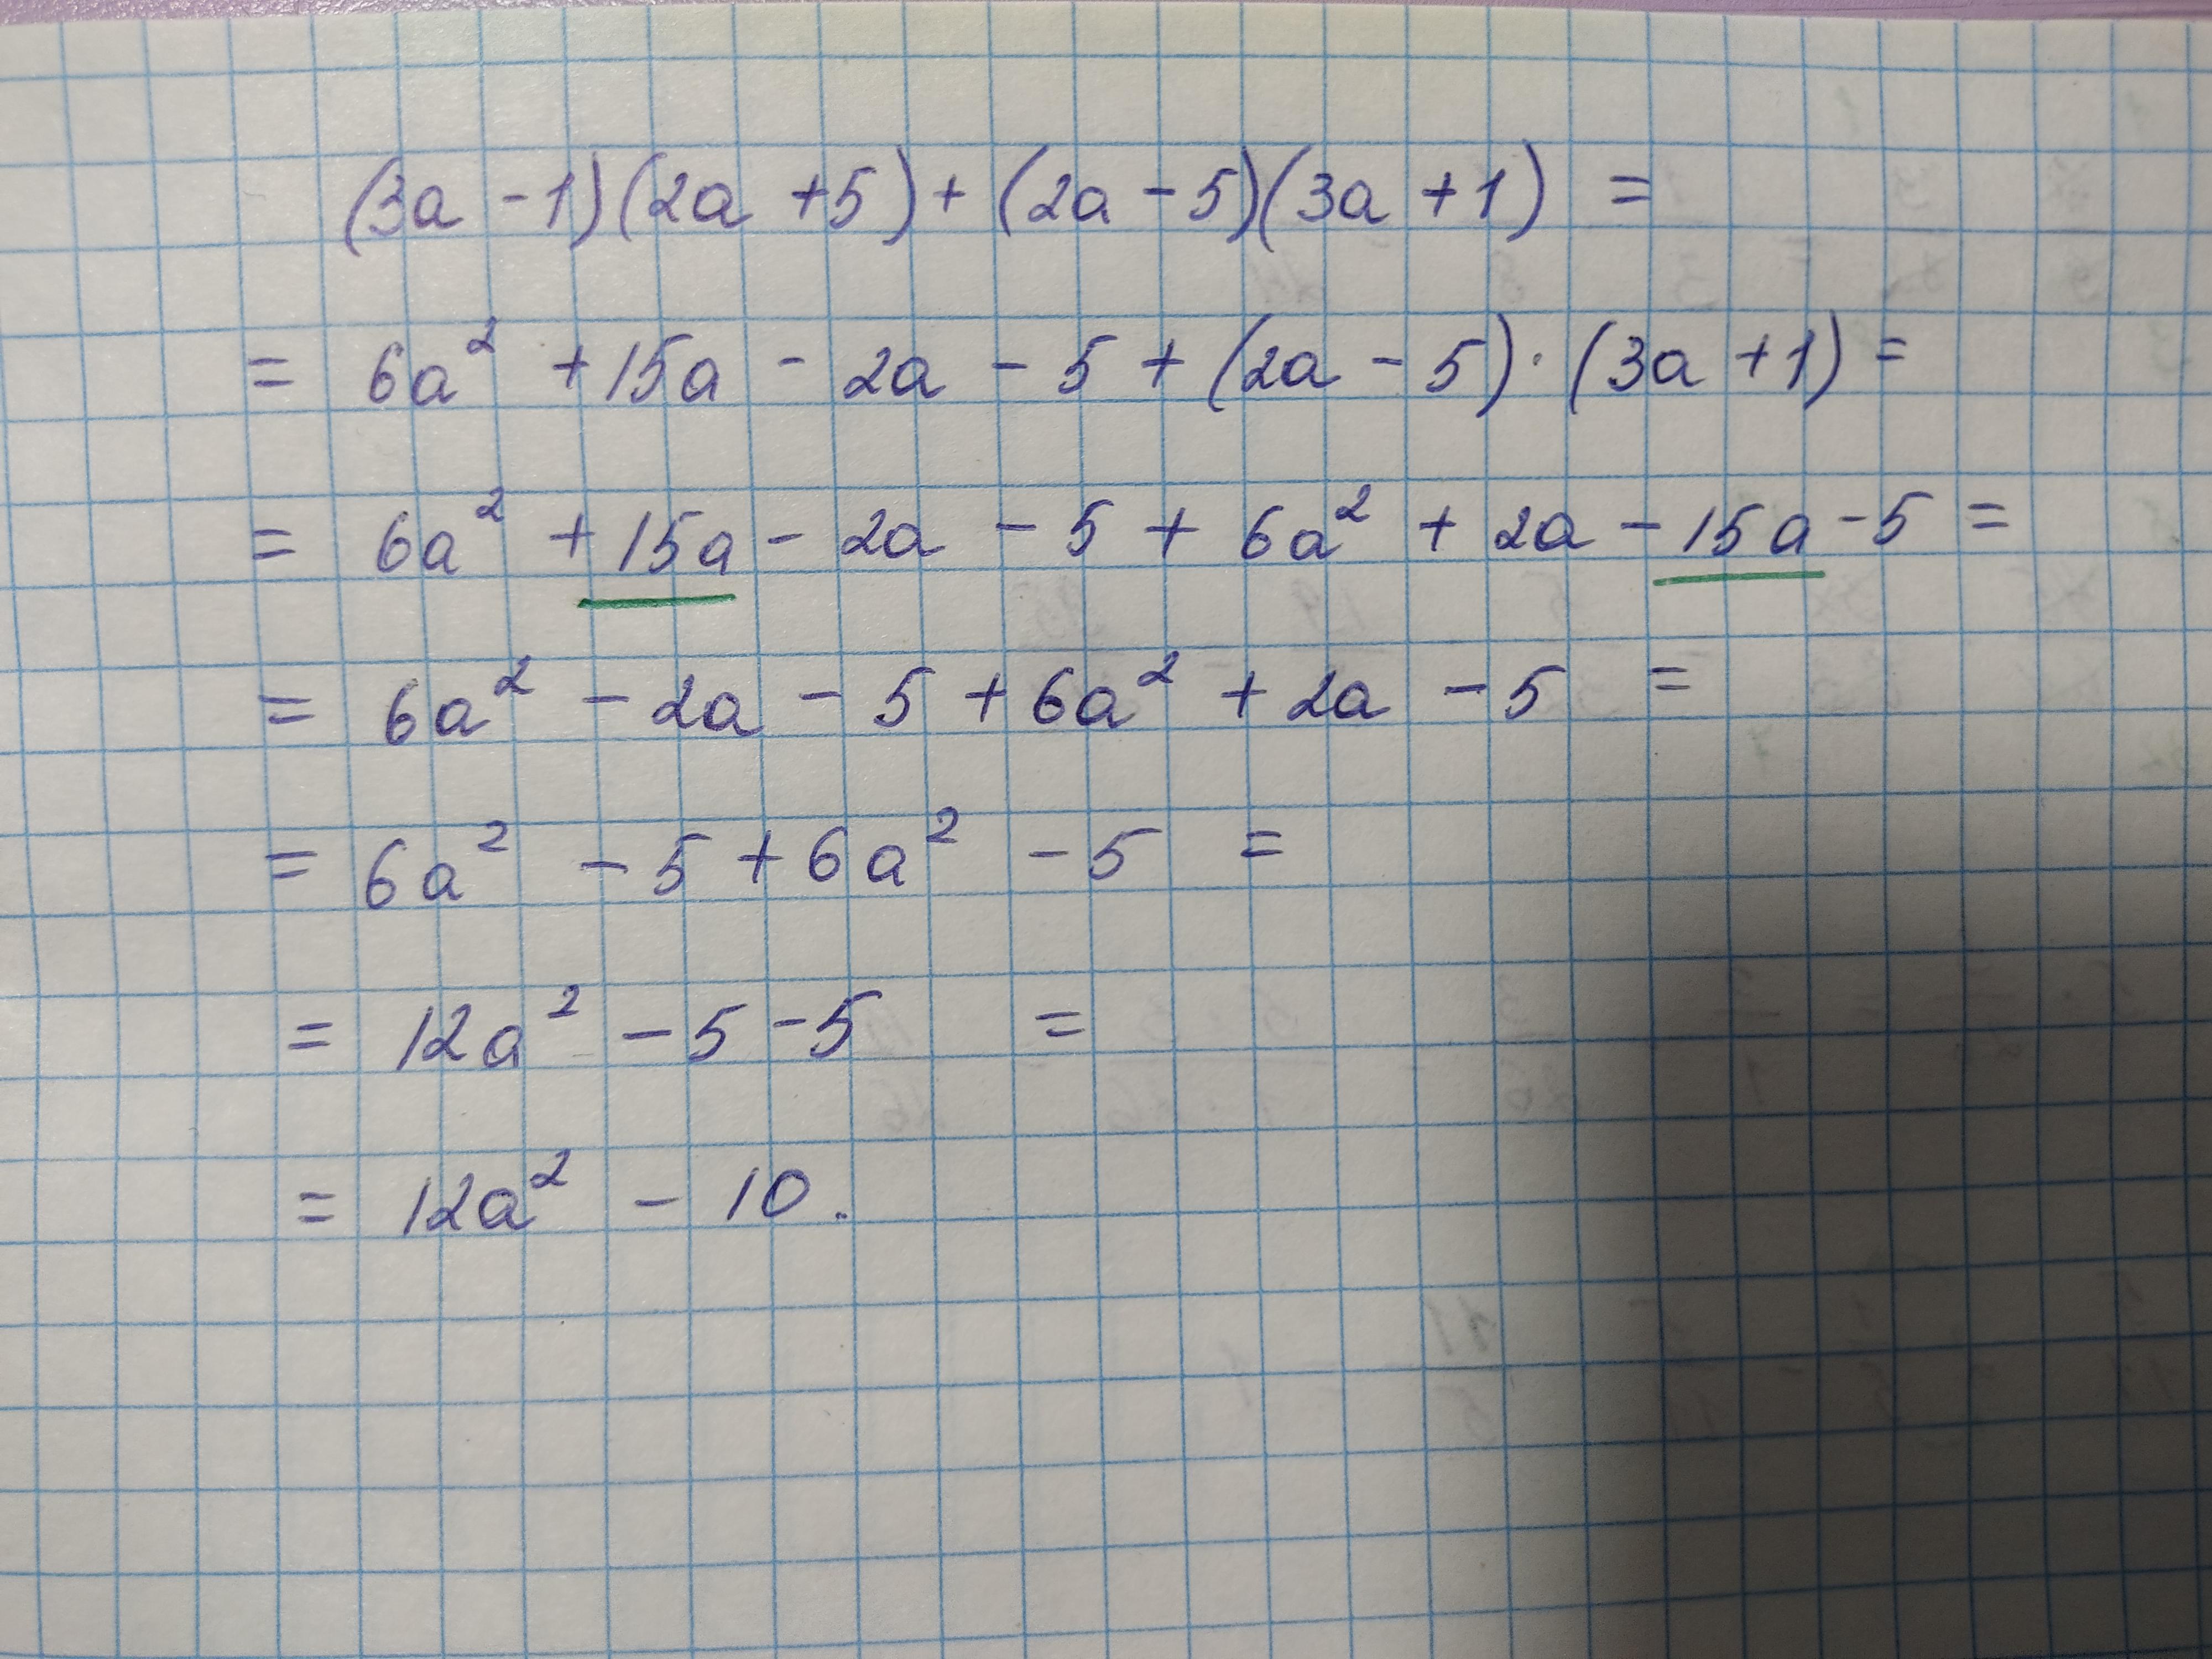 (3a - 1)(2a + 5) + (2a - 5)(3a + 1) =
= 6a² + 15a - 2a - 5 + (2a - 5) · (3a + 1) =
= 6a² + 15a - 2a - 5 + 6a² + 2a - 15a - 5 =
= 6a² - 2a - 5 + 6a² + 2a - 5 =
= 6a² - 5 + 6a² - 5 =
= 12a² - 5 - 5 =
= 12a² - 10.